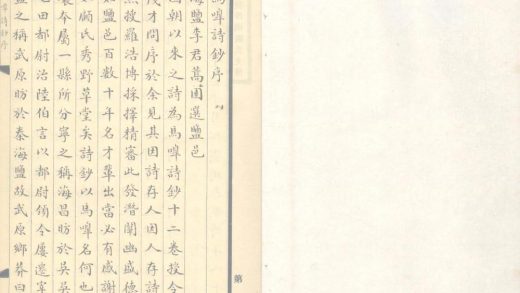 馬嘷詩鈔序
海鹽李君蒿圃選鹽邑
國朝以來之詩為馬嘷詩鈔十二卷授令
茂才問序於余見其因詩存人因人存詩
然搜羅浩博採擇精審此發潛闡幽盛德
如鹽邑百數十年名才輩出當必有感謝
如顧氏秀野草堂矣詩鈔以馬嘷名何也
夲屬一縣所分寧之稱海昌昉於吳吳
屯田都尉治陸伯言以都尉領令屢遷寧
鹽之稱武原昉於秦海鹽故武原鄉莽曰
第